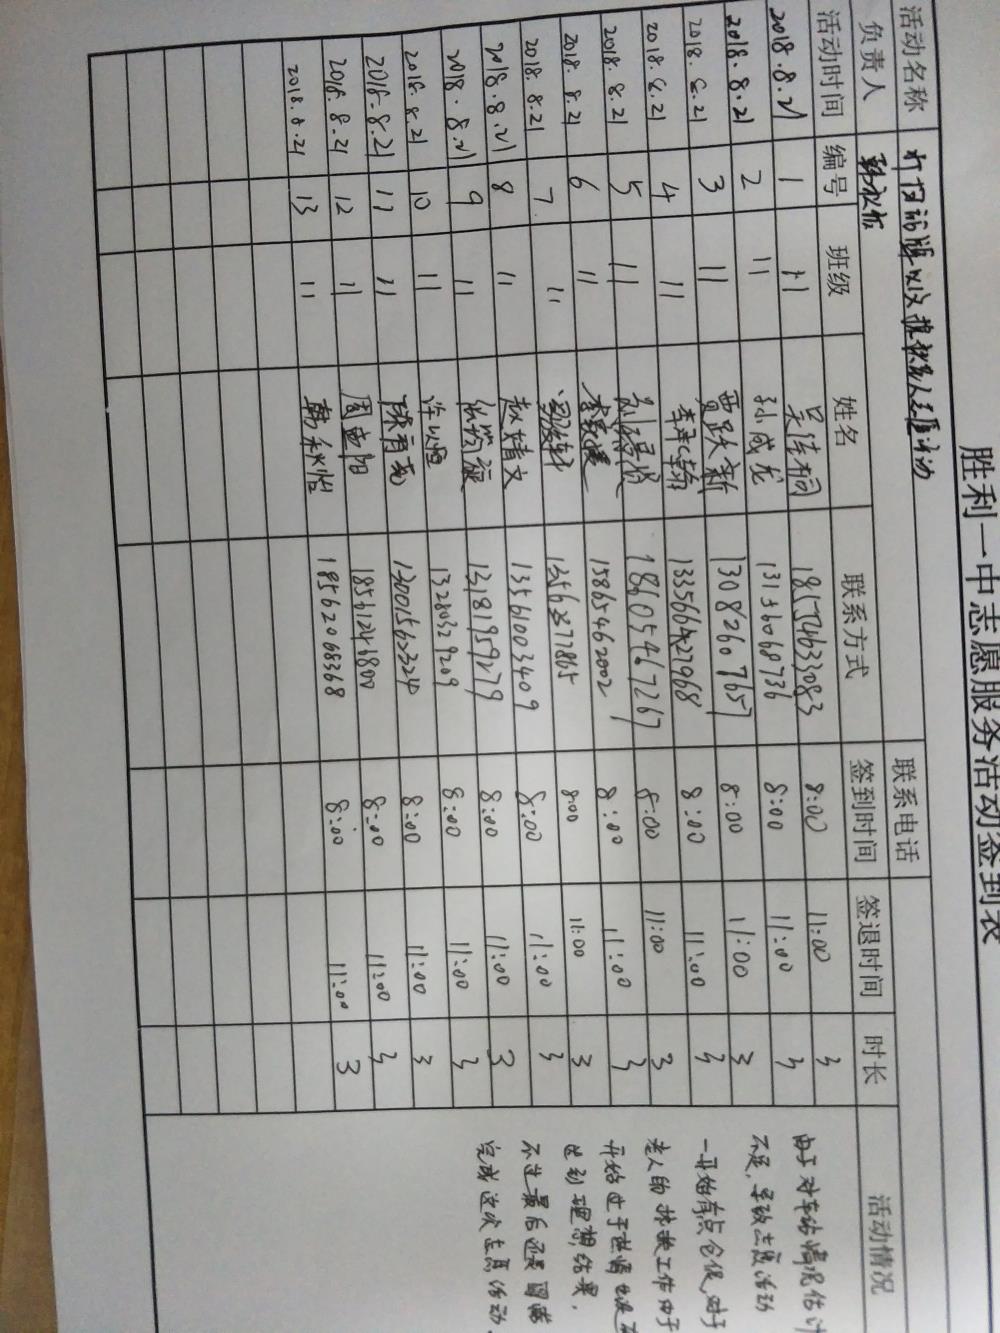 胜利一中志愿服务活动签到表
活动名称 打扫 活动
负责人 联系电话
活动时间 编号 班级 姓名 联系方式 签到时间 签退时间 时长 活动情况
2018.8.21 1 11 吴佳桐 18175463083 8:00 11:00 3
2018.8.21 2 11 孙成龙 13136068736 8:00 11:00 3
2018.8.21 3 11 贾跃新 13082607657 8:00 11:00 3
2018.8.21 4 11 13356627968 8:00 11:00 3
2018.8.21 5 11 18605467267 8:00 11:00 3
2018.8.21 6 11 15865462002 8:00 11:00 3
2018.8.21 7 11 8:00 11:00 3
2018.8.21 8 11 赵婧文 13561003409 8:00 11:00 3
2018.8.21 9 11 13181959279 8:00 11:00 3
2018.8.21 10 11 许以恒 13280329209 8:00 11:00 3
2018.8.21 11 11 13001562324 8:00 11:00 3
2018.8.21 12 11 18561246800 8:00 11:00 3
2018.8.21 13 11 韩秋怡 18562068368 8:00 11:00 3
由于对车站情况估计
不足,导致志愿活动
一开始有点仓促,对于
老人的扶持工作由于
开始过于热情也没有
达到理想结果,
不过最后还是圆满
完成这次志愿活动.